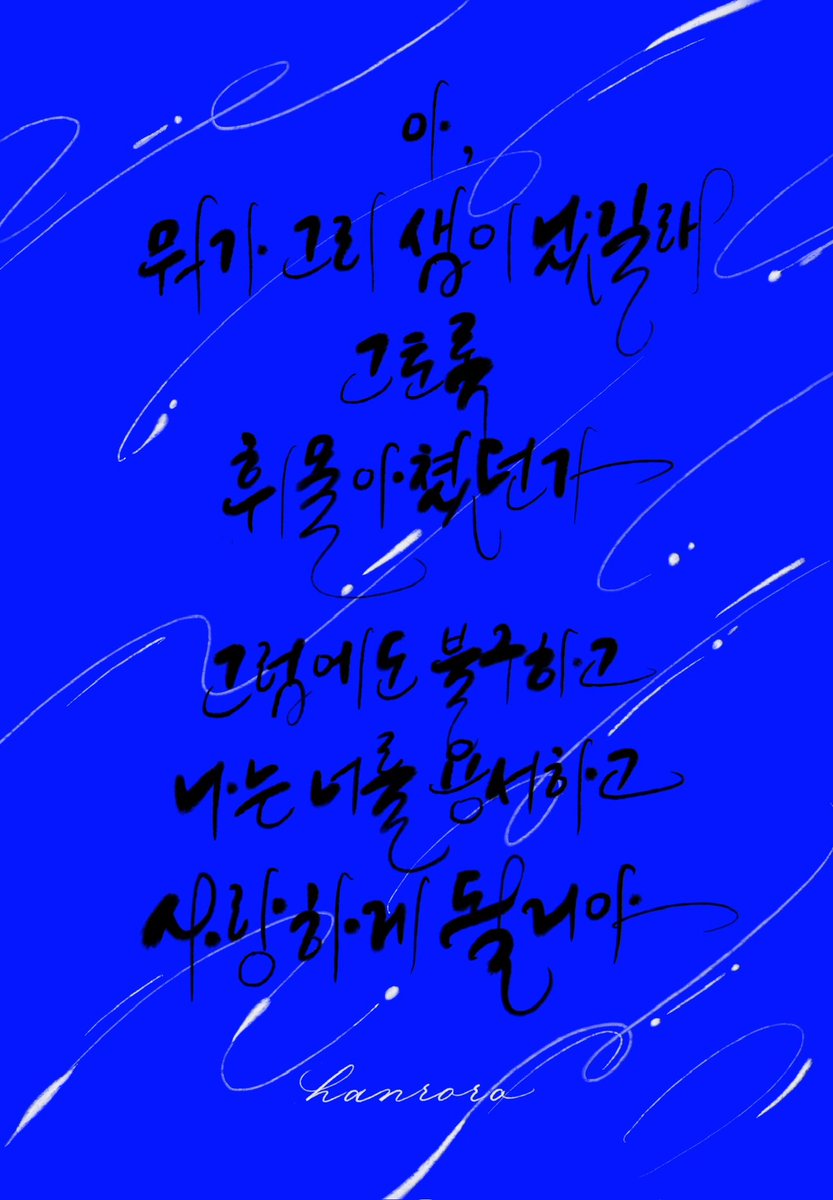 아,
뭐가 그리 샘이 났길래
그토록
휘몰아쳤던가
그럼에도 불구하고
나는 너를 용서하고
사랑하게 될 거야
hanroro